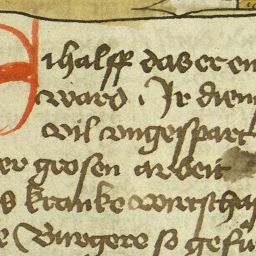 ihalff das er en
ward . Ir dien
vil vngespart
er grosen arbeit
s kranke wirtscha
e Burgere so gefů